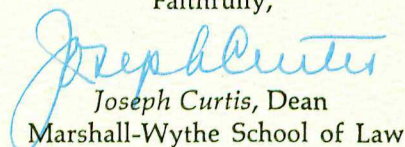 Faithfully,
Joseph Curtis
Joseph Curtis, Dean
Marshall-Wythe School of Law